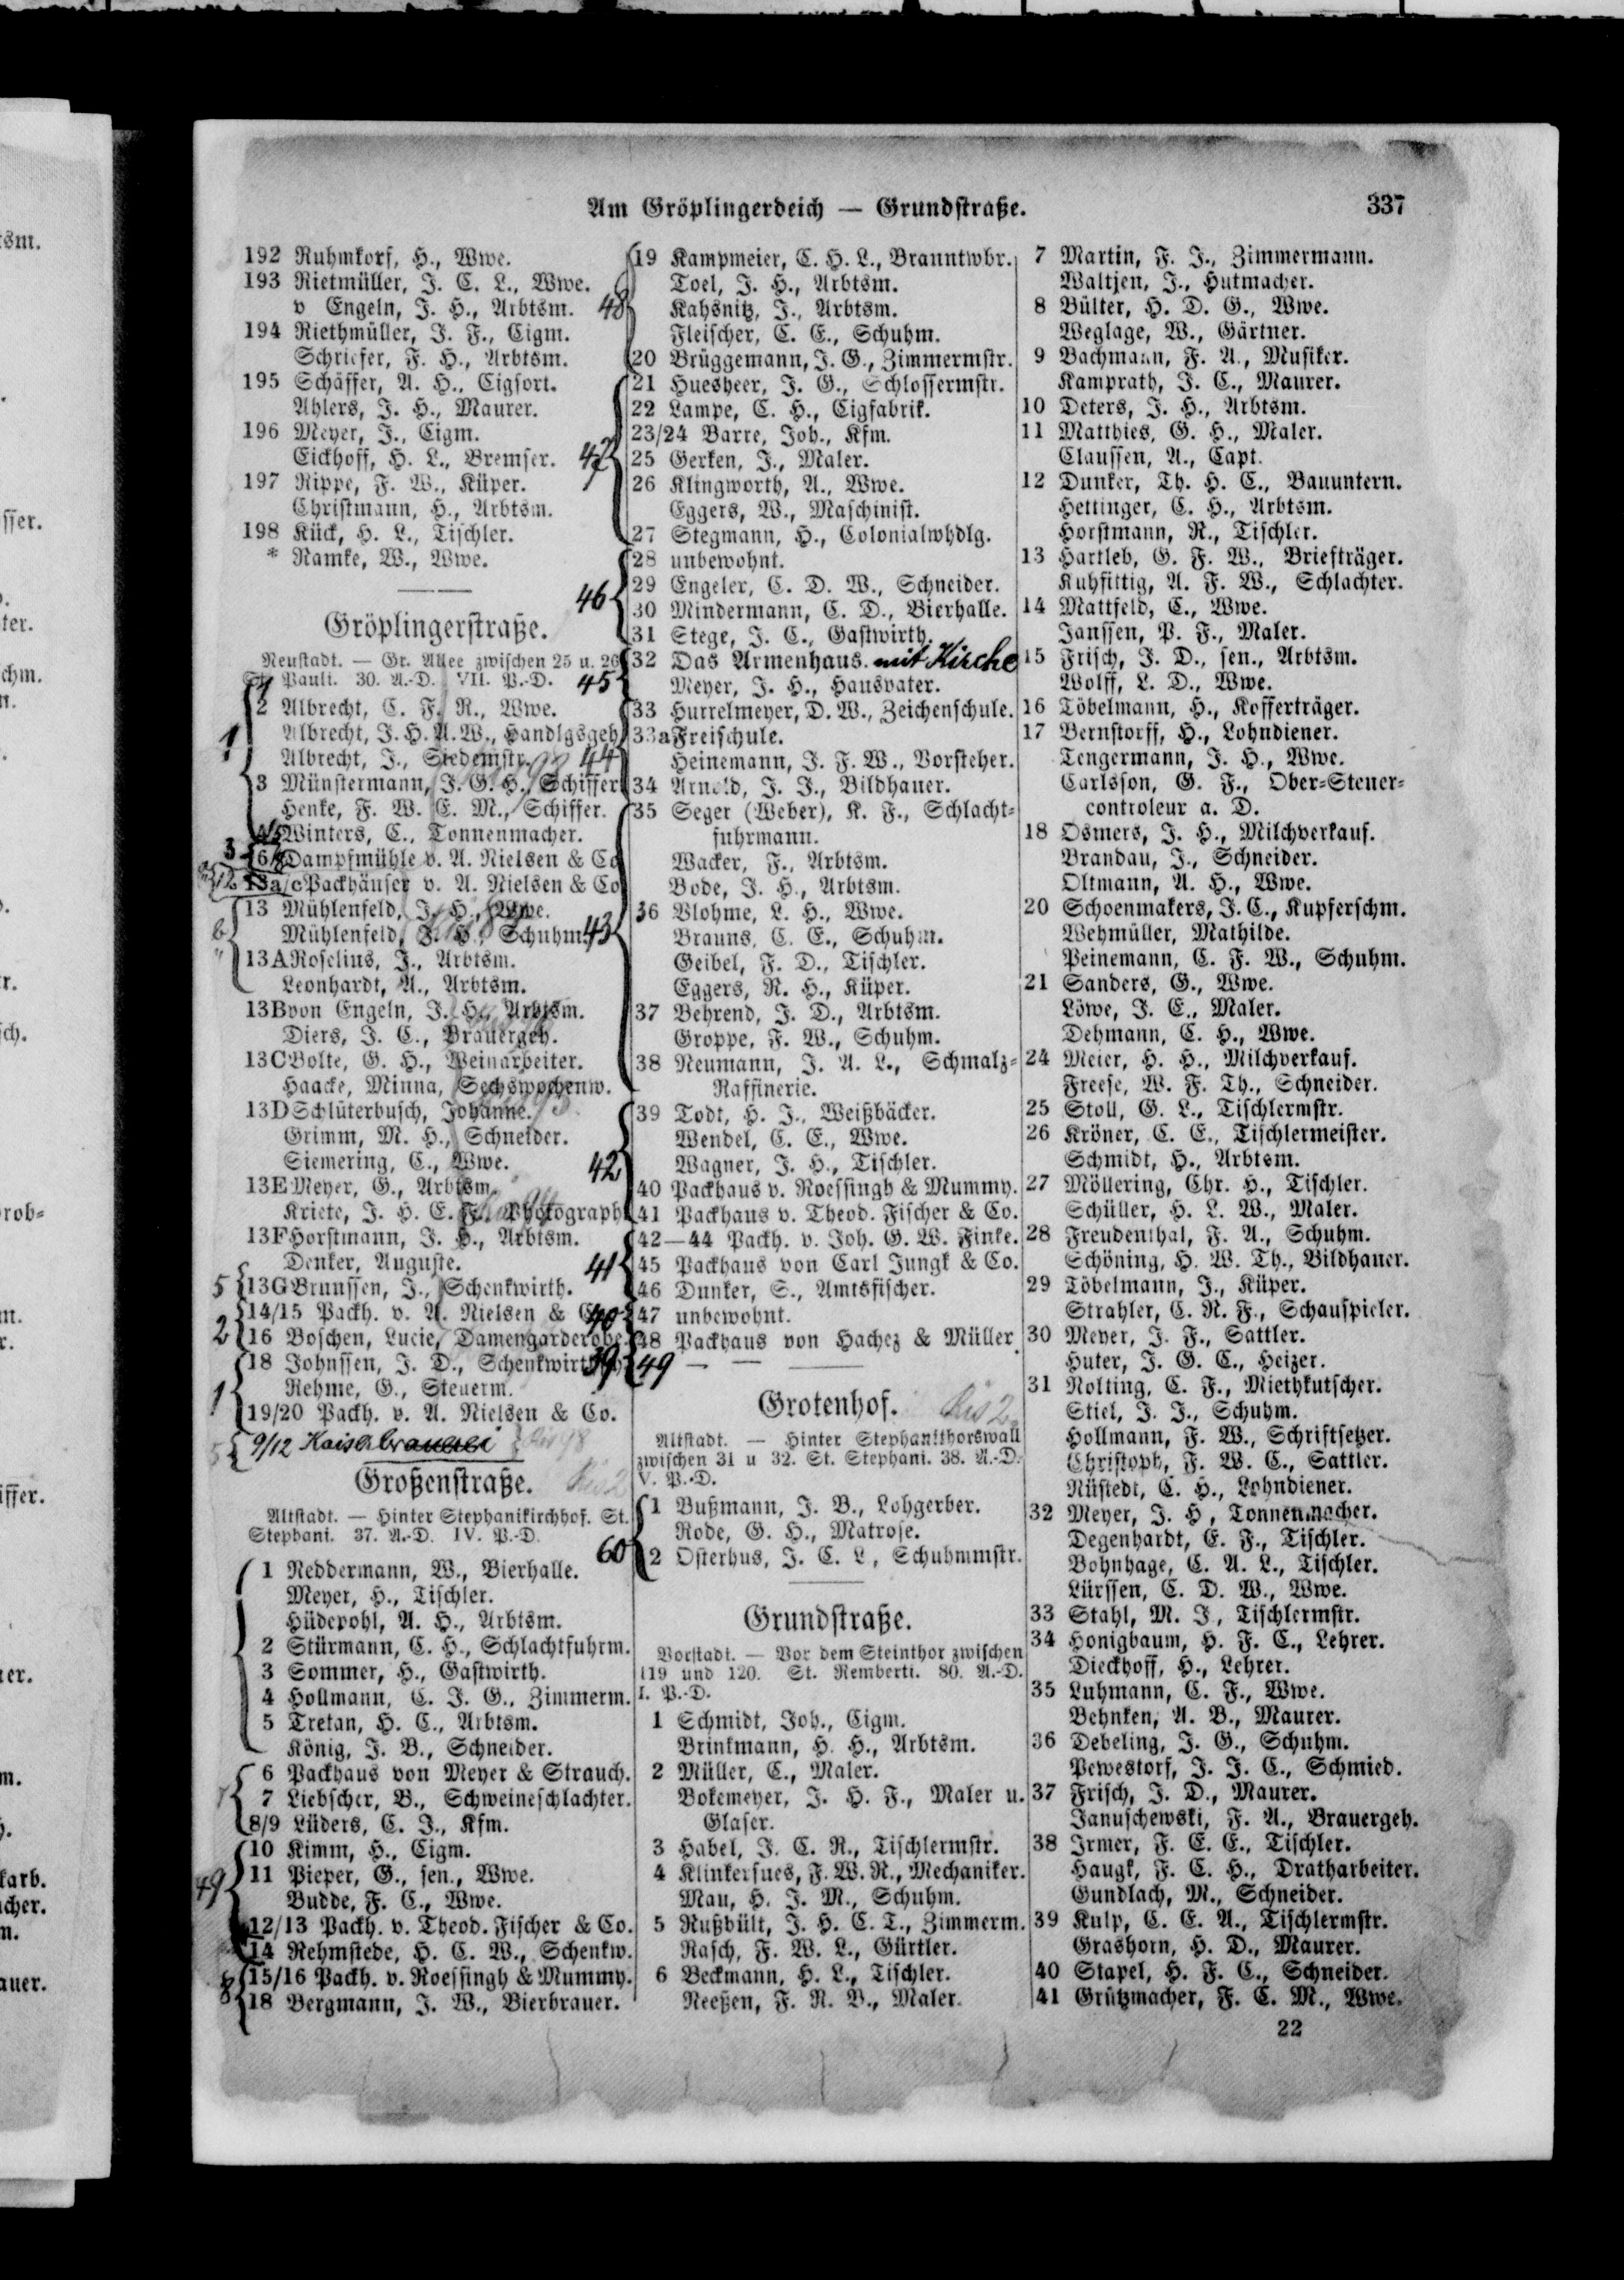 Am Gröplingerdeich — Grundstraße. 337
192 Ruhmkorf, H., Wwe.
193 Rietmüller, J. C. L., Wwe.
v Engeln, J. H., Arbtsm.
194 Riethmüller, J. F., Cigm.
Schriefer, F. H., Arbtsm.
195 Schäffer, A. H., Cigsort.
Ahlers, J. H., Maurer.
196 Meyer, J., Cigm.
Eickhoff, H. L., Bremser.
197 Rippe, F. W., Küper.
Christmann, H., Arbtsm.
198 Kück, H. L., Tischler.
* Ramke, W., Wwe.
Gröplingerstraße.
Neustadt. — Gr. Allee zwischen 25 u. 26
St. Pauli. 30. A.-D. VII. P.-D.
1
2 Albrecht, C. F. R., Wwe.
Albrecht, J. H. A. W., Handlgsgeh
Albrecht, J., Siedemstr.
3 Münstermann, J. G. H., Schiffer
Henke, F. W. E. M., Schiffer.
Winters, C., Tonnenmacher.
3 6/8 Dampfmühle v. A. Nielsen & Co
12 13a/c Packhäuser v. A. Nielsen & Co
13 Mühlenfeld, J. H., Wwe.
6 Mühlenfeld, J. H., Schuhm.
13A Roselius, J., Arbtsm.
Leonhardt, A., Arbtsm.
13B von Engeln, J. H., Arbtsm.
Diers, J. C., Brauergeh.
13C Bolte, G. H., Weinarbeiter.
Haacke, Minna, Sechswochenw.
13D Schlüterbusch, Johanne.
Grimm, M. H., Schneider.
Siemering, C., Wwe.
13E Meyer, G., Arbtsm.
Kriete, J. H. E. F., Photograph
13F Horstmann, J. H., Arbtsm.
Denker, Auguste.
5 13G Brunssen, J., Schenkwirth.
14/15 Packh. v. A. Nielsen &
2 16 Boschen, Lucie, Damengarderobe.
18 Johnssen, J. D., Schenkwirthsch
1 Rehme, G., Steuerm.
19/20 Packh. v. A. Nielsen & Co.
5 9/12 Kaiserbrauerei
Großenstraße.
Altstadt. — Hinter Stephanikirchhof. St.
Stephani. 37. A.-D. IV. P.-D.
1 Neddermann, W., Bierhalle.
Meyer, H., Tischler.
Hüdepohl, A. H., Arbtsm.
2 Stürmann, C. H., Schlachtfuhrm.
3 Sommer, H., Gastwirth.
4 Hollmann, C. J. G., Zimmerm.
5 Tretan, H. C., Arbtsm.
König, J. B., Schneider.
6 Packhaus von Meyer & Strauch.
7 Liebscher, B., Schweineschlachter.
8/9 Lüders, C. J., Kfm.
10 Kimm, H., Cigm.
49 11 Pieper, G., sen., Wwe.
Budde, F. C., Wwe.
12/13 Packh. v. Theod. Fischer & Co.
14 Rehmstede, H. C. W., Schenkw.
8 15/16 Packh. v. Roessingh & Mummy.
18 Bergmann, J. W., Bierbrauer.
19 Kampmeier, C. H. L., Branntwbr.
Toel, J. H., Arbtsm.
48 Kahsnitz, J., Arbtsm.
Fleischer, C. E., Schuhm.
20 Brüggemann, J. G., Zimmermstr.
21 Huesheer, J. G., Schlossermstr.
22 Lampe, C. H., Cigfabrik.
23/24 Barre, Joh., Kfm.
47 25 Gerken, J., Maler.
26 Klingworth, A., Wwe.
Eggers, W., Maschinist.
27 Stegmann, H., Colonialwhdlg.
28 unbewohnt.
29 Engeler, C. D. W., Schneider.
46 30 Mindermann, C. D., Bierhalle.
31 Stege, J. C., Gastwirth.
32 Das Armenhaus. mit Kirche
45 Meyer, J. H., Hausvater.
33 Hurrelmeyer, D. W., Zeichenschule.
33a Freischule.
44 Heinemann, J. F. W., Vorsteher.
34 Arnold, J. J., Bildhauer.
35 Seger (Weber), K. F., Schlacht-
fuhrmann.
Wacker, F., Arbtsm.
Bode, J. H., Arbtsm.
36 Blohme, L. H., Wwe.
43 Brauns, C. E., Schuhm.
Geibel, F. D., Tischler.
Eggers, R. H., Küper.
37 Behrend, J. D., Arbtsm.
Groppe, F. W., Schuhm.
38 Neumann, J. A. L., Schmalz-
Raffinerie.
39 Todt, H. J., Weißbäcker.
Wendel, C. E., Wwe.
42 Wagner, J. H., Tischler.
40 Packhaus v. Roessingh & Mummy.
41 Packhaus v. Theod. Fischer & Co.
42—44 Packh. v. Joh. G. W. Finke.
41 45 Packhaus von Carl Jungk & Co.
46 Dunker, S., Amtsfischer.
40 47 unbewohnt.
48 Packhaus von Hachez & Müller.
39 49 — —
Grotenhof.
Altstadt. — Hinter Stephanithorswall
zwischen 31 u 32. St. Stephani. 38. A.-D.
V. P.-D.
1 Bußmann, J. B., Lohgerber.
Rode, G. H., Matrose.
60 2 Osterhus, J. C. L, Schuhmmstr.
Grundstraße.
Vorstadt. — Vor dem Steinthor zwischen
119 und 120. St. Remberti. 80. A.-D.
I. P.-D.
1 Schmidt, Joh., Cigm.
Brinkmann, H. H., Arbtsm.
2 Müller, C., Maler.
Bokemeyer, J. H. F., Maler u.
Glaser.
3 Habel, J. C. R., Tischlermstr.
4 Klinkersues, F. W. R., Mechaniker.
Mau, H. J. M., Schuhm.
5 Nußbült, J. H. C. T., Zimmerm.
Rasch, F. W. L., Gürtler.
6 Beckmann, H. L., Tischler.
Neeßen, F. R. B., Maler.
7 Martin, F. J., Zimmermann.
Waltjen, J., Hutmacher.
8 Bülter, H. D. G., Wwe.
Weglage, W., Gärtner.
9 Bachmann, F. A., Musiker.
Kamprath, J. C., Maurer.
10 Deters, J. H., Arbtsm.
11 Matthies, G. H., Maler.
Claussen, A., Capt.
12 Dunker, Th. H. C., Bauuntern.
Hettinger, C. H., Arbtsm.
Horstmann, R., Tischler.
13 Hartleb, G. F. W., Briefträger.
Kuhfittig, A. F. W., Schlachter.
14 Mattfeld, C., Wwe.
Janssen, P. F., Maler.
15 Frisch, J. D., sen., Arbtsm.
Wolff, L. D., Wwe.
16 Töbelmann, H., Kofferträger.
17 Bernstorff, H., Lohndiener.
Tengermann, J. H., Wwe.
Carlsson, G. F., Ober-Steuer-
controleur a. D.
18 Osmers, J. H., Milchverkauf.
Brandau, J., Schneider.
Oltmann, A. H., Wwe.
20 Schoenmakers, J. C., Kupferschm.
Wehmüller, Mathilde.
Peinemann, C. F. W., Schuhm.
21 Sanders, G., Wwe.
Löwe, J. E., Maler.
Dehmann, C. H., Wwe.
24 Meier, H. H., Milchverkauf.
Freese, W. F. Th., Schneider.
25 Stoll, G. L., Tischlermstr.
26 Kröner, C. E., Tischlermeister.
Schmidt, H., Arbtsm.
27 Möllering, Chr. H., Tischler.
Schüller, H. L. W., Maler.
28 Freudenthal, F. A., Schuhm.
Schöning, H. W. Th., Bildhauer.
29 Töbelmann, J., Küper.
Strahler, C. R. F., Schauspieler.
30 Meyer, J. F., Sattler.
Huter, J. G. C., Heizer.
31 Nolting, C. F., Miethkutscher.
Stiel, J. J., Schuhm.
Hollmann, F. W., Schriftsetzer.
Christoph, F. W. C., Sattler.
Nüstedt, C. H., Lohndiener.
32 Meyer, J. H, Tonnenmacher.
Degenhardt, E. F., Tischler.
Bohnhage, C. A. L., Tischler.
Lürssen, C. D. W., Wwe.
33 Stahl, M. J., Tischlermstr.
34 Honigbaum, H. F. C., Lehrer.
Dieckhoff, H., Lehrer.
35 Luhmann, C. F., Wwe.
Behnken, A. B., Maurer.
36 Debeling, J. G., Schuhm.
Pewestorf, J. J. C., Schmied.
37 Frisch, J. D., Maurer.
Januschewski, F. A., Brauergeh.
38 Irmer, F. E. E., Tischler.
Haugk, F. C. H., Dratharbeiter.
Gundlach, M., Schneider.
39 Kulp, C. E. A., Tischlermstr.
Grashorn, H. D., Maurer.
40 Stapel, H. F. C., Schneider.
41 Grützmacher, F. C. M., Wwe.
22